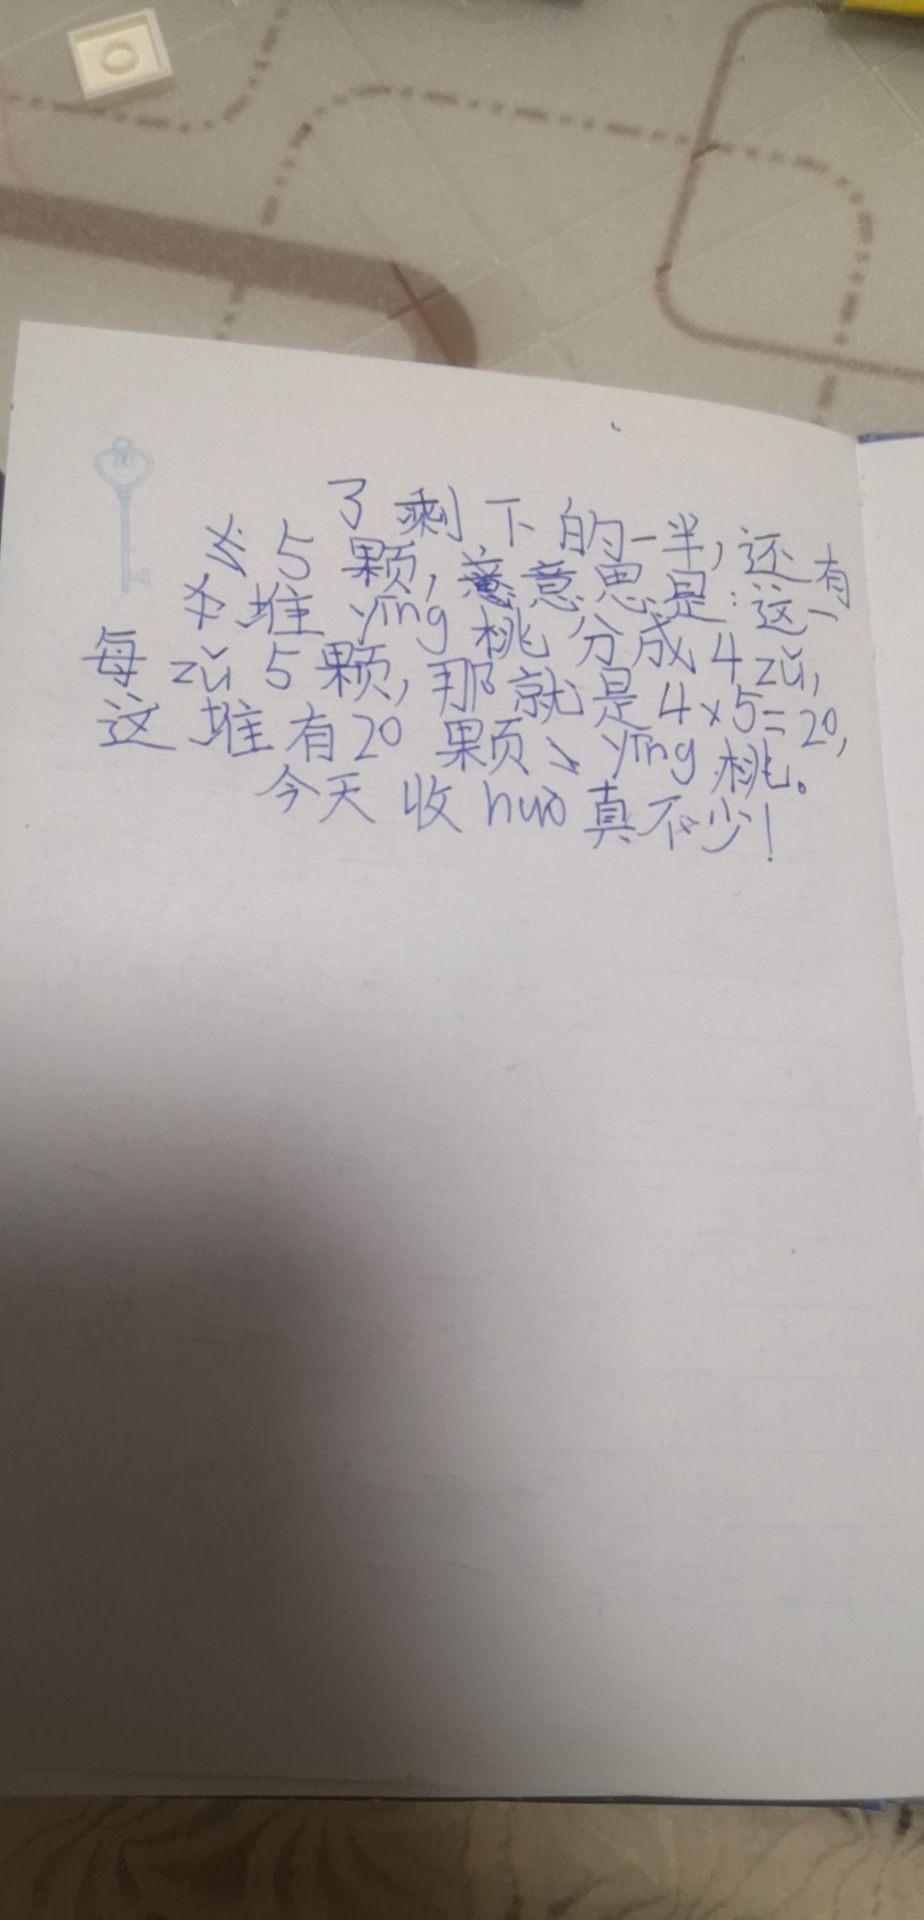 了剩下的一半,还有
5颗,意思是:这一
堆yīng桃分成4zǔ,
每zǔ5颗,那就是4×5=20,
这堆有20颗yīng桃。
今天收huò真不少!